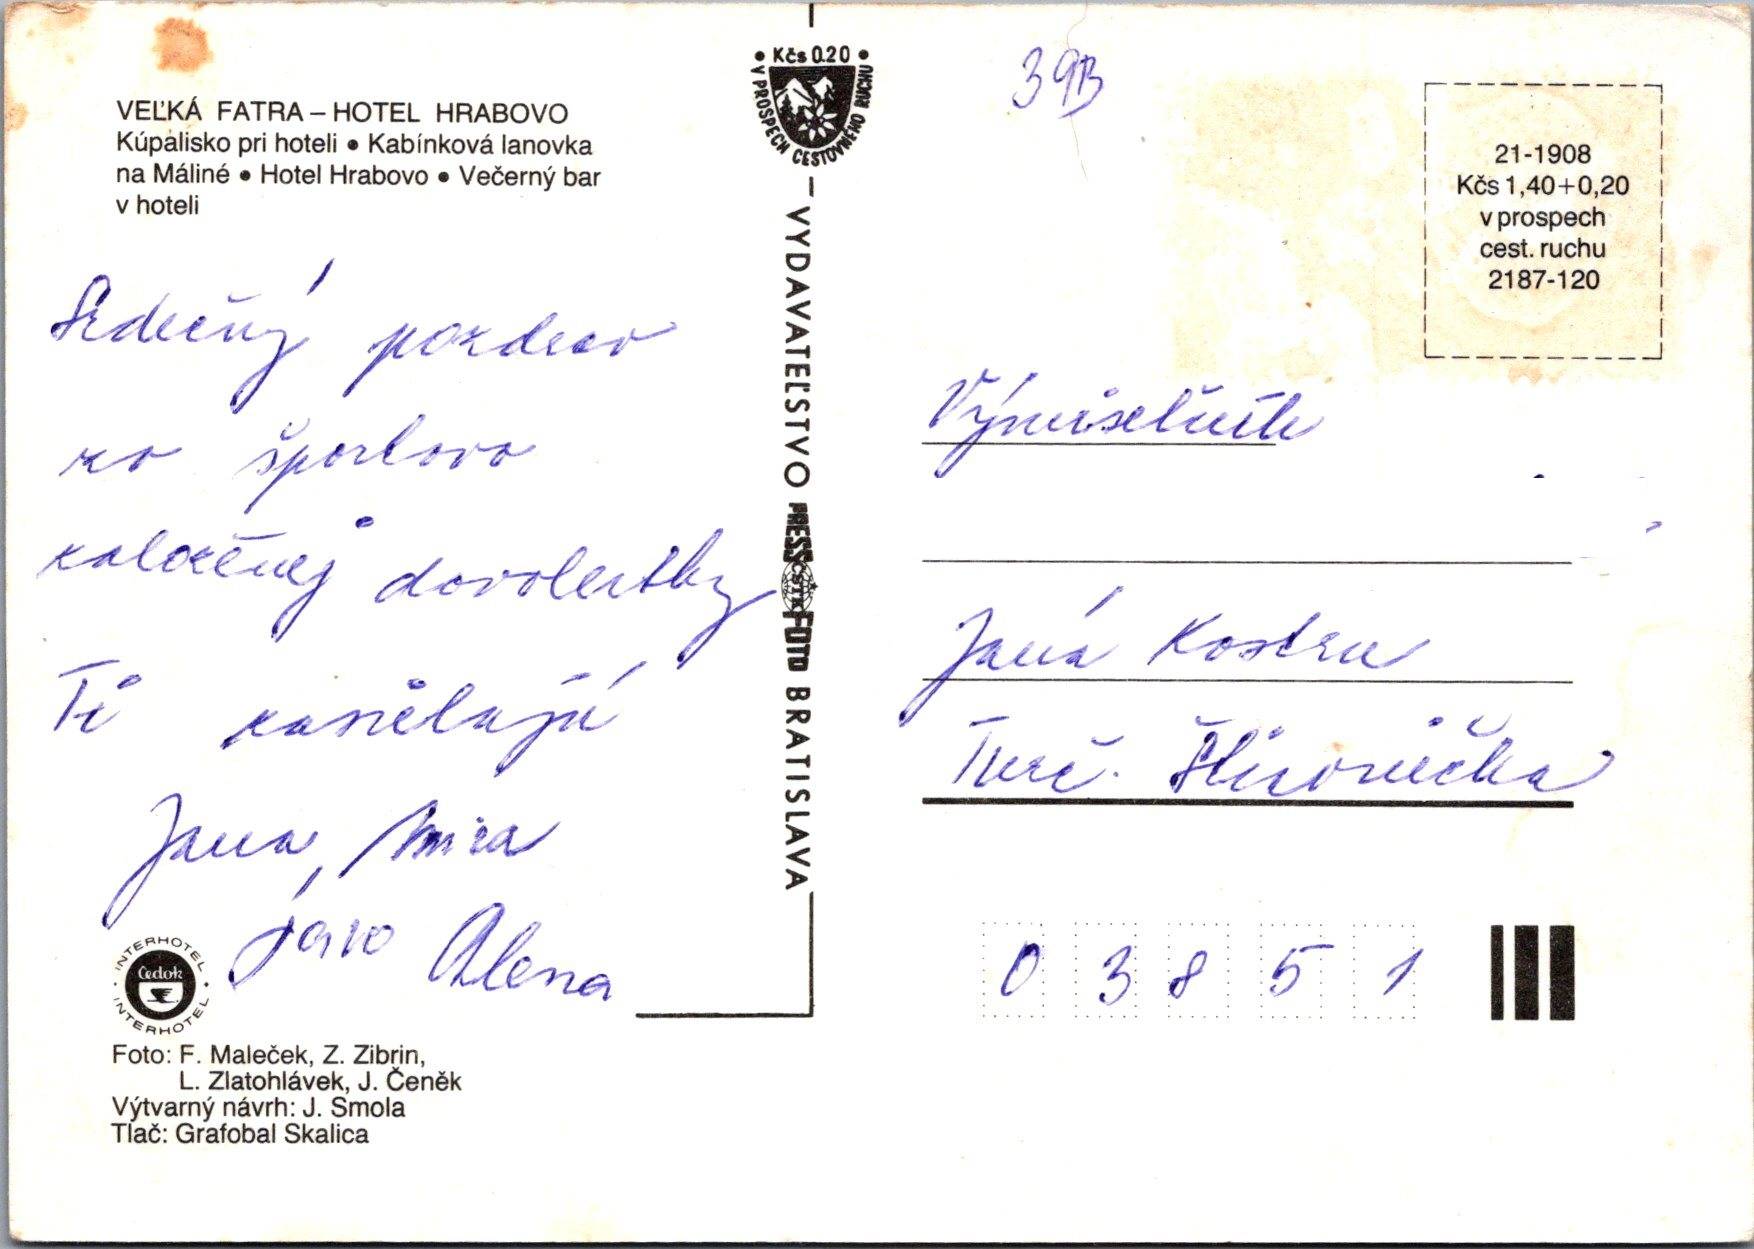 VEĽKÁ FATRA – HOTEL HRABOVO
Kúpalisko pri hoteli • Kabínková lanovka
na Máliné • Hotel Hrabovo • Večerný bar
v hoteli
Srdečný pozdrav
zo športovo
založenej dovolenky
Ti zasielajú
Jana, Mira
Jaro Alena
INTERHOTEL
Čedok
INTERHOTEL
Foto: F. Maleček, Z. Zibrin,
L. Zlatohlávek, J. Čeněk
Výtvarný návrh: J. Smola
Tlač: Grafobal Skalica
• Kčs 0.20 •
V PROSPECH CESTOVNÉHO RUCHU
VYDAVATEĽSTVO PRESSFOTO BRATISLAVA
ČSTK
39B
21-1908
Kčs 1,40+0,20
v prospech
cest. ruchu
2187-120
Janá Kostru
Turč. Štiavnička
03851